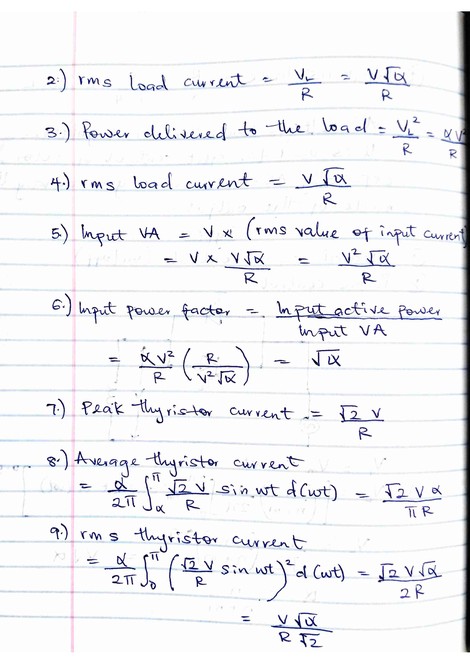 2.) rms load current = V_L/R = V√α/R
3.) Power delivered to the load = V_L²/R = αV²/R
4.) rms load current = V√α/R
5.) Input VA = V × (rms value of input current)
= V × V√α/R = V²√α/R
6.) Input power factor = Input active power/Input VA
= αV²/R (R/V²√α) = √α
7.) Peak thyristor current = √2 V/R
8.) Average thyristor current
= α/2π ∫_α^π √2 V/R sin wt d(wt) = √2 V α/πR
9.) rms thyristor current
= α/2π ∫_0^π (√2 V/R sin wt)² d(wt) = √2 V√α/2R
= V√α/R√2